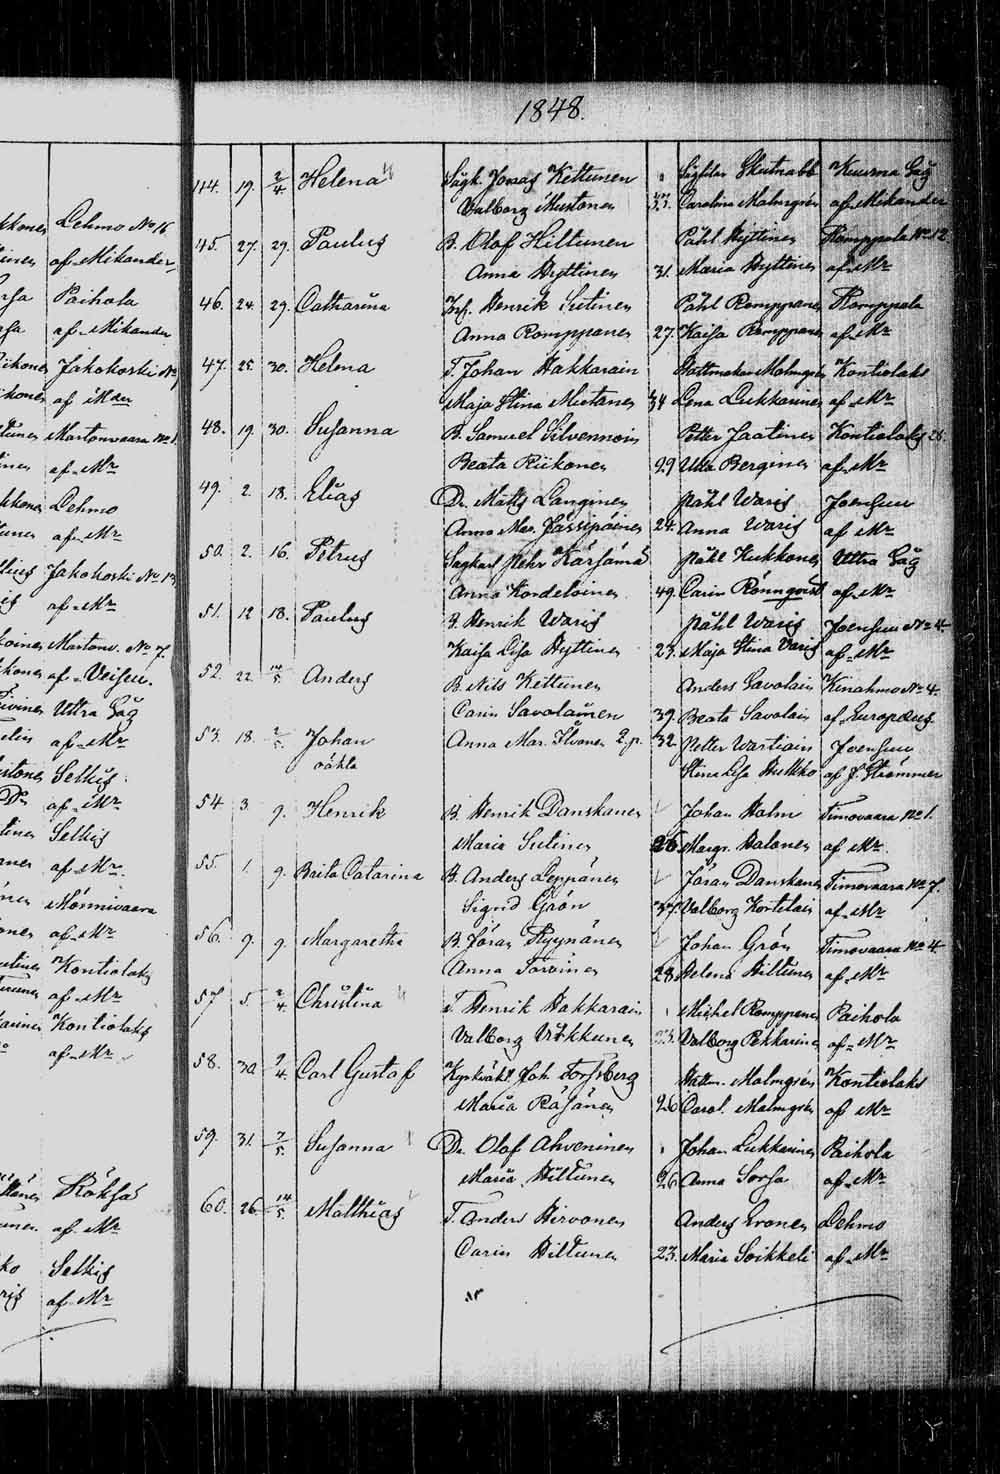 1848.
Lehmo No 16
af Mikander
Paihola
af Mikander
Jakokoski No
af Mder
Martonvaara No 1.
af Mr
Lehmo
af Mr
Jakokoski No 13
af Mr
Martonv. No 7.
af Veisen.
Uttra Såg
af Mr
Selkis
af Mr
Selkis
af Mr
Mönnivaara
af Mr
Kontiolaks
af Mr
Kontiolaks
af Mr
Röksä
af Mr
Selkis
af Mr
144. 19. 2/4 Helena Sågk. Jonas Kettunen Sågfiler Skutnabb Kuurna Såg
Valborg Mustonen 33. Carolina Malmgren af Mikander
45. 27. 29. Paulus B. Olof Hiltunen Påhl Hyttinen Romppala No 12
Anna Hyttinen 31. Maria Hyttinen af Mr
46. 24. 29. Catharina Inh. Henrik Sutinen Påhl Romppanen Romppala
Anna Romppanen 27. Kaisa Romppanen af Mr
47. 25. 30. Helena T. Johan Hakkarain Hattmakar Malmgren Kontiolaks
Maja Stina Miettanen 34 Lena Lukkarinen af Mr
48. 19. 30. Susanna B. Samuel Silvennoin Petter Jaatinen Kontiolaks 28.
Beata Riikonen 29 Ulla Berginen af Mr
49. 2. 18. Elias Dr. Matts Langinen Påhl Waris Joensuu
Anna Mar. Jässipäinen 24. Anna Waris af Mr
50. 2. 16. Petrus Sagkarl Pehr Kärjämä Påhl Kukkonen Uttra Såg
Anna Kondeloinen 49. Carin Rönnqvist af Mr
51. 12 18. Paulus B. Henrik Waris Påhl Waris Joensuu No 4.
Kaisa Lisa Hyttinen 23. Maja Stina Varis af Mr
52. 22 14/5. Anders B. Nils Kettunen Anders Savolain Kinahmo No 4.
Carin Savolainen 39. Beata Savolain af Europæus
53. 18. 2/5. Johan Anna Mar. Ilvonen 2. p. 32. Petter Wartiain Joensuu
oäkta Stina Lisa Hukko af J. Strömmer
54 3 9. Henrik B. Henrik Danskanen Johan Holm Timovaara No 1.
Maria Sutinen 26 Margr. Halonen af Mr.
55. 1. 9. Brita Catarina B. Anders Leppänen Jöran Danskanen Timovaara No 7.
Sigrid Grön 37. Valborg Kortelain af Mr
56. 9. 9. Margaretha B. Jöran Ryynänen Johan Grön Timovaara No 4.
Anna Torvinen 28 Helena Hiltunen af Mr
57 5. 2/4. Christina T. Henrik Hakkarain Michel Romppanen Paihola
Valborg Turkkunen 23. Valborg Pekkarinen af Mr
58. 30. 2/4. Carl Gustaf Kyrkväkt. Joh. Forssberg Hattm. Malmgren Kontiolaks
Maria Räsänen 26 Carol. Malmgren af Mr
59. 31. 7/5. Susanna Dr. Olof Ahveninen Johan Lukkarinen Paihola
Maria Hiltunen 26 Anna Sorsa af Mr
60. 26. 14/5. Matthias T. Anders Hirvonen Anders Eronen Lehmo
Carin Hiltunen 23. Maria Soikkeli af Mr